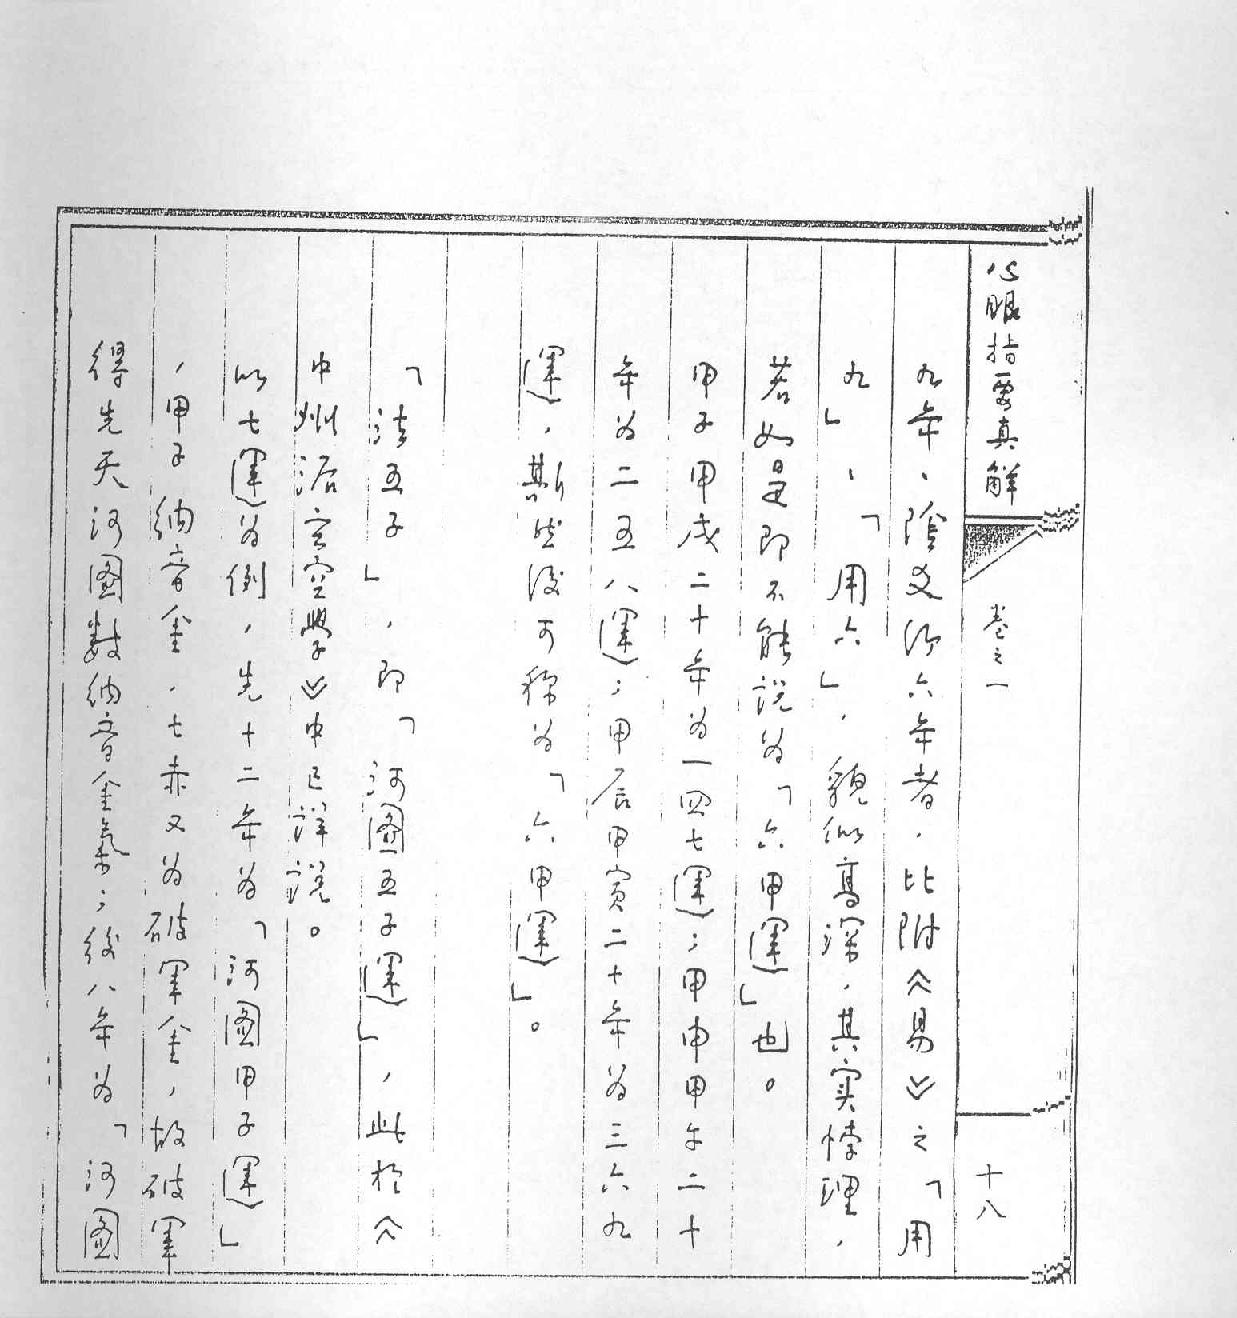 心眼指要真解
卷之一
十八
九年、陰爻為六年者,比附《易》之「用
九」、「用六」,貌似高深,其实悖理,
若如是即不能説為「六甲運」也。
甲子甲戌二十年為一四七運;甲申甲午二十
年為二五八運;甲辰甲寅二十年為三六九
運,斯然後可称為「六甲運」。
「法五子」,即「河圖五子運」,此於《
中州派玄空學》中已詳説。
以七運為例,先十二年為「河圖甲子運」
,甲子納音金,七赤又為破軍金,故破軍
得先天河圖數納音金氣;後八年為「河圖